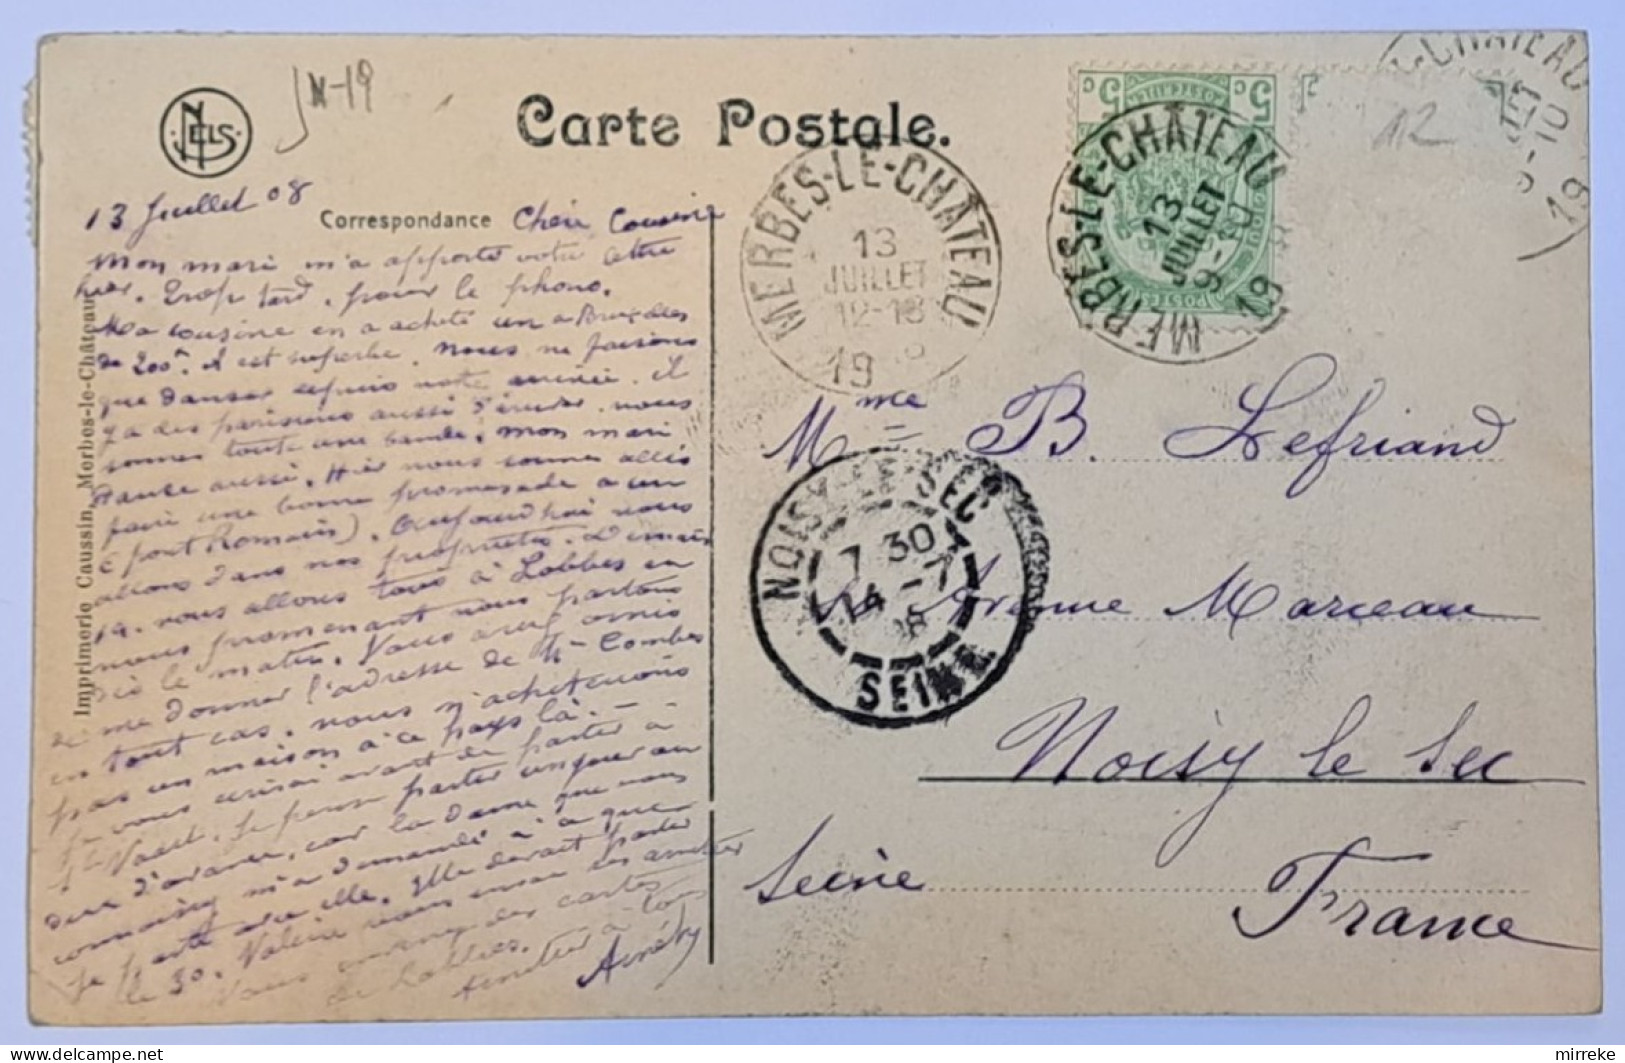 NELS
N-19
Carte Postale.
12
13 Juillet 08
Correspondance Chère Cousine
Mon mari m'a apporté votre lettre
hier. Trop tard, pour le phono.
Ma cousine en a acheté un a Bruxelles
de 200f. il est superbe. Nous ne faisons
que danser depuis notre arrivée. il
y a des parisiens aussi d'invités. nous
sommes toute une bande. mon mari
danse aussi. Hier nous sommes allés
faire une bonne promenade a un
(pont Romain). Aujourd'hui nous
allons dans nos propriétés. Demain
14. nous allons tous à Lobbes en
nous promenant nous partons
dès le matin. Vous avez omis
de me donner l'adresse de Mme Combes
en tout cas. nous n'achèterons
pas un maison à ce pays là. —
Je vous écrirai avant de partir à
Je pense partir un jour ou
deux d'avance, car la dame que nous
connaissons m'a demandé à ce que
je parte avec elle. Elle devait partir
le 30. Valérie vous envoie ses amitiés
Vous envoye des cartes
de Lobbes.
Amitiés à tous
Imprimerie Caussin, Merbes-le-Château
MERBES-LE-CHATEAU
13
JUILLET
12-13
19
MERBES-LE-CHATEAU
13
JUILLET
9-10
19
E-CHATEAU
9-10
19
5 c
5 c
POSTES
NOISY-LE-SEC
7 30
14 -7
08
SEINE
Mme B. Lefriand
Avenue Marceau
Noisy le Sec
Seine
France
mirreke